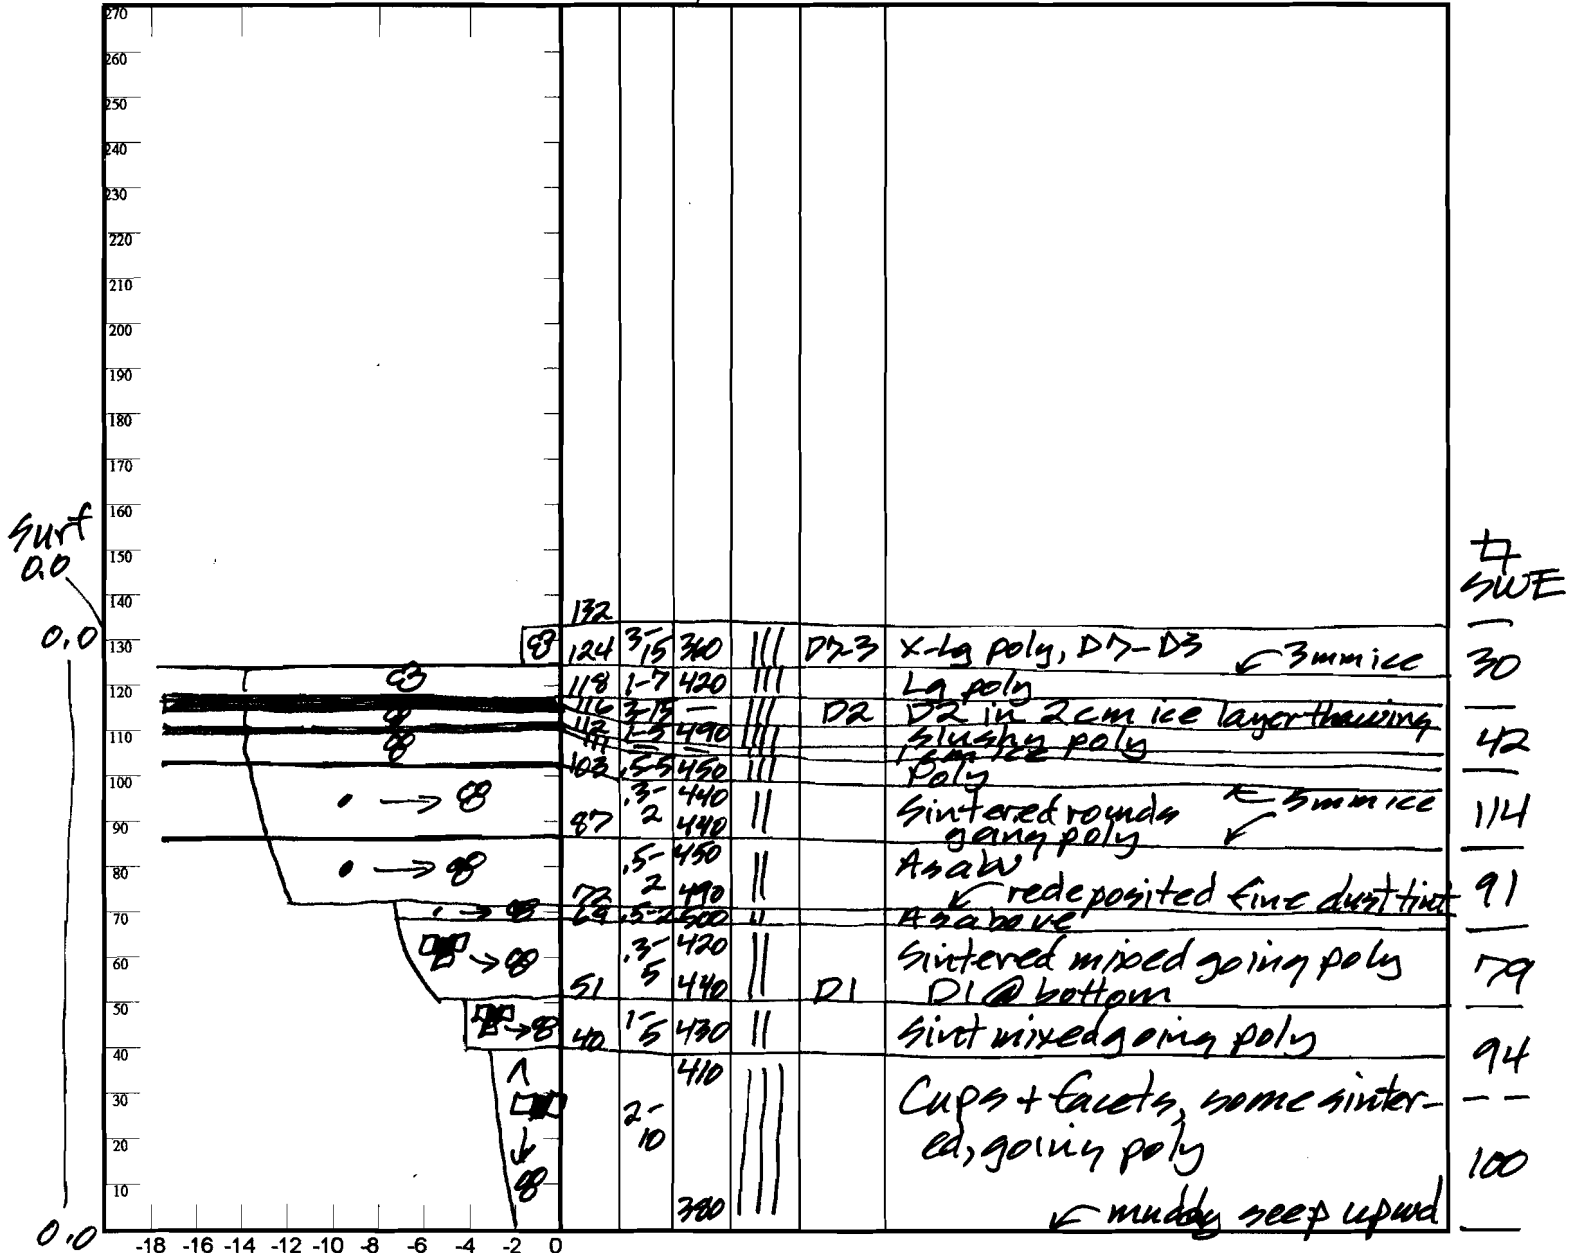 270
260
250
240
230
220
210
200
190
180
170
160
150
140
130
120
110
100
90
80
70
60
50
40
30
20
10
-18 -16 -14 -12 -10 -8 -6 -4 -2 0
Surf
0.0
0.0
0.0
SWE
132
124 3-15 360 ||| D2-3 X-Lg poly, D2-D3 ↙ 3mm ice 30
118 1-7 420 ||| Lg poly
116 3-15 — ||| D2 D2 in 2cm ice layer thawing
112 1-5 490 |||| Slushy poly 42
111 1cm ice
103 .5-5 450 ||| Poly
.3-2 440 || Sintered rounds ← 3mm ice 114
87 440 going poly ↙
.5-2 450 || As abv
72 490 ↙ redeposited fine dust tint 91
69 .5-2 500 || As above
.3-5 420 || Sintered mixed going poly 79
51 440 D1 D1 @ bottom
40 1-5 430 || Sint mixed going poly
410 94
2-10 ||| Cups + facets, some sinter-
ed, going poly 100
380 ↙ muddy seep upwd